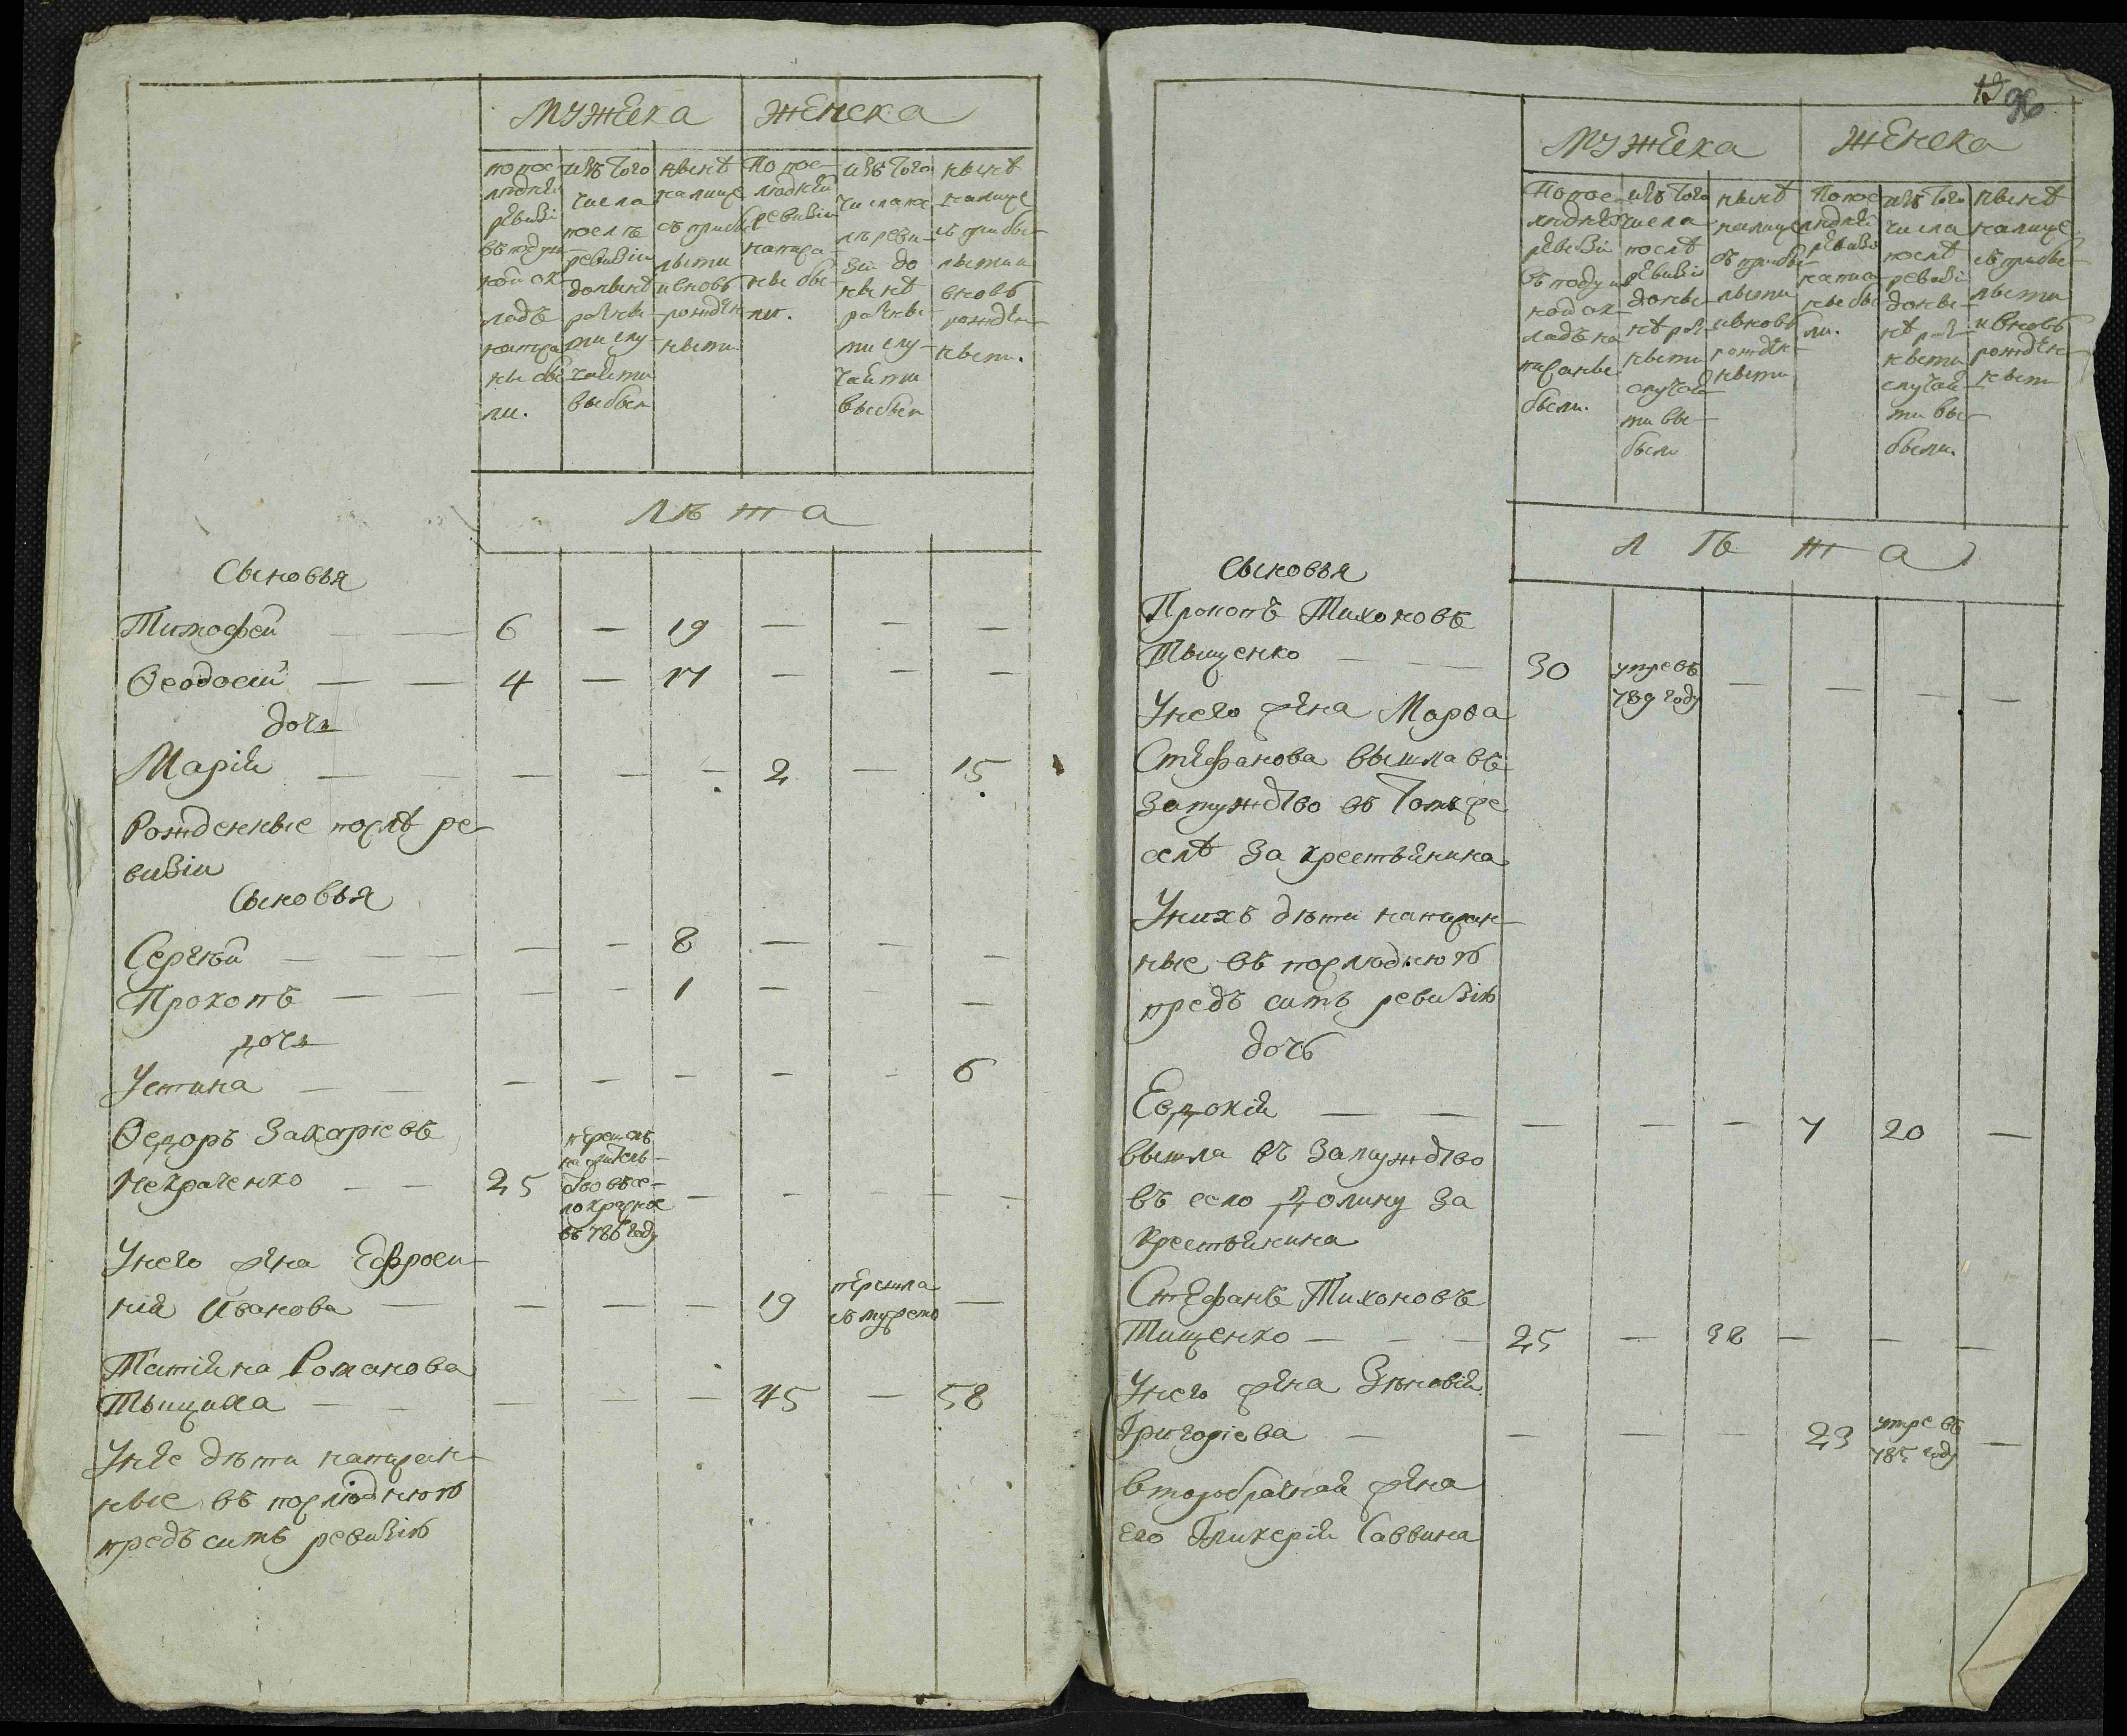 мужеска женска
по пос-
ледней
ревизіи
въ подуш-
ной ок-
ладъ
написа-
ны бы-
ли.
изъ того
числа
послѣ
ревизіи
до нынѣ
разны-
ми слу-
чаями
выбыли
нынѣ
на лице
съ прибы-
лыми
и вновь
рожден-
ными
По пос-
ледней
ревизіи
написа-
ны бы-
ли.
изъ того
числа пос-
лѣ реви-
зіи до
нынѣ
разны-
ми слу-
чаями
выбыли
нынѣ
на лице
съ прибы-
лыми и
вновь
рожден-
ными.
лѣта
Сыновья
Тимофей — — 6 — 19 — — —
Ѳеодосій — — 4 — 17 — — —
дочь
Марія — — — — — 2 — 15
Рожденные послѣ ре-
визіи
Сыновья
Сергѣй — — — — — 8 — — —
Прокопъ — — — — 1 — — —
дочь
Устина — — — — — — — 6
Ѳедоръ Захаріевъ
Некраченко — — 25
перешолъ
на житель-
ство въ се-
ло красное
въ 786 году
— — — — —
У него жена Ефроси-
нія Иванова — — — — 19
перешла
съ мужемъ —
Татіяна Романова
Тыщиха — — — — — 45 — 58
У нее дѣти написан-
ные въ последнюю
предъ симъ ревизію
19
96
мужеска женска
По пос-
ледней
ревизіи
въ подуш-
ной ок-
ладъ на-
писаны
были.
изъ того
числа
послѣ
ревизіи
до ны-
нѣ раз-
ными
случая-
ми вы-
были
нынѣ
на лице
съ прибы-
лыми
и вновь
рожден-
ными
По пос-
ледней
ревизіи
написа-
ны бы-
ли.
изъ того
числа
послѣ
ревизіи
до ны-
нѣ раз-
ными
случая-
ми вы-
были.
нынѣ
на лице
съ прибы-
лыми
и вновь
рожден-
ными
лѣта
сыновья
Прокопъ Тихоновъ
Тыщенко — — 30
умре въ
789 году
— — — —
У него жена Марѳа
Стефанова вышла въ
замужство въ томъ же
селѣ за крестьянина
У нихъ дѣти написан-
ные въ последнюю
предъ симъ ревизію
дочь
Евдокія — — — — — 7 20 —
вышла въ замужство
въ село Долину за
крестьянина
Стефанъ Тихоновъ
Тищенко — — — 25 — 38 — — —
У него жена Зѣновія
Григоріева — — — — 23
умре въ
785 году
—
Второбрачная жена
его Гликерія Саввина